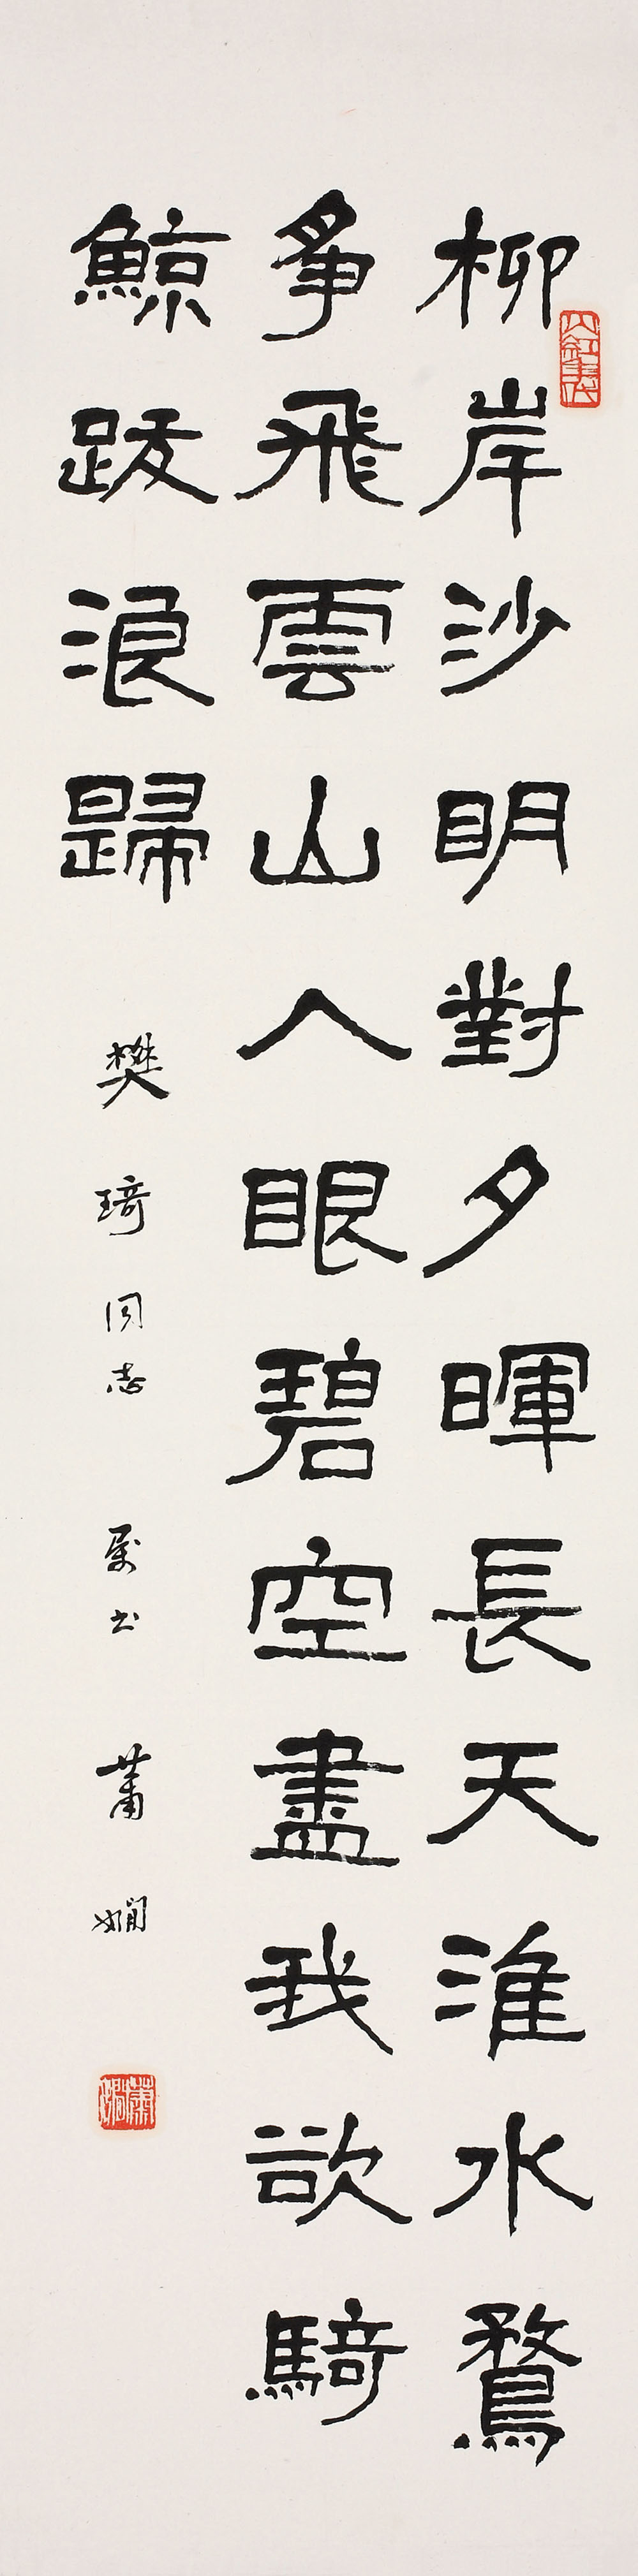 柳岸沙明對夕暉長天淮水鶩
爭飛雲山入眼碧空盡我欲騎
鯨跋浪歸
樊琦同志属书蕭嫻
蕭嫻